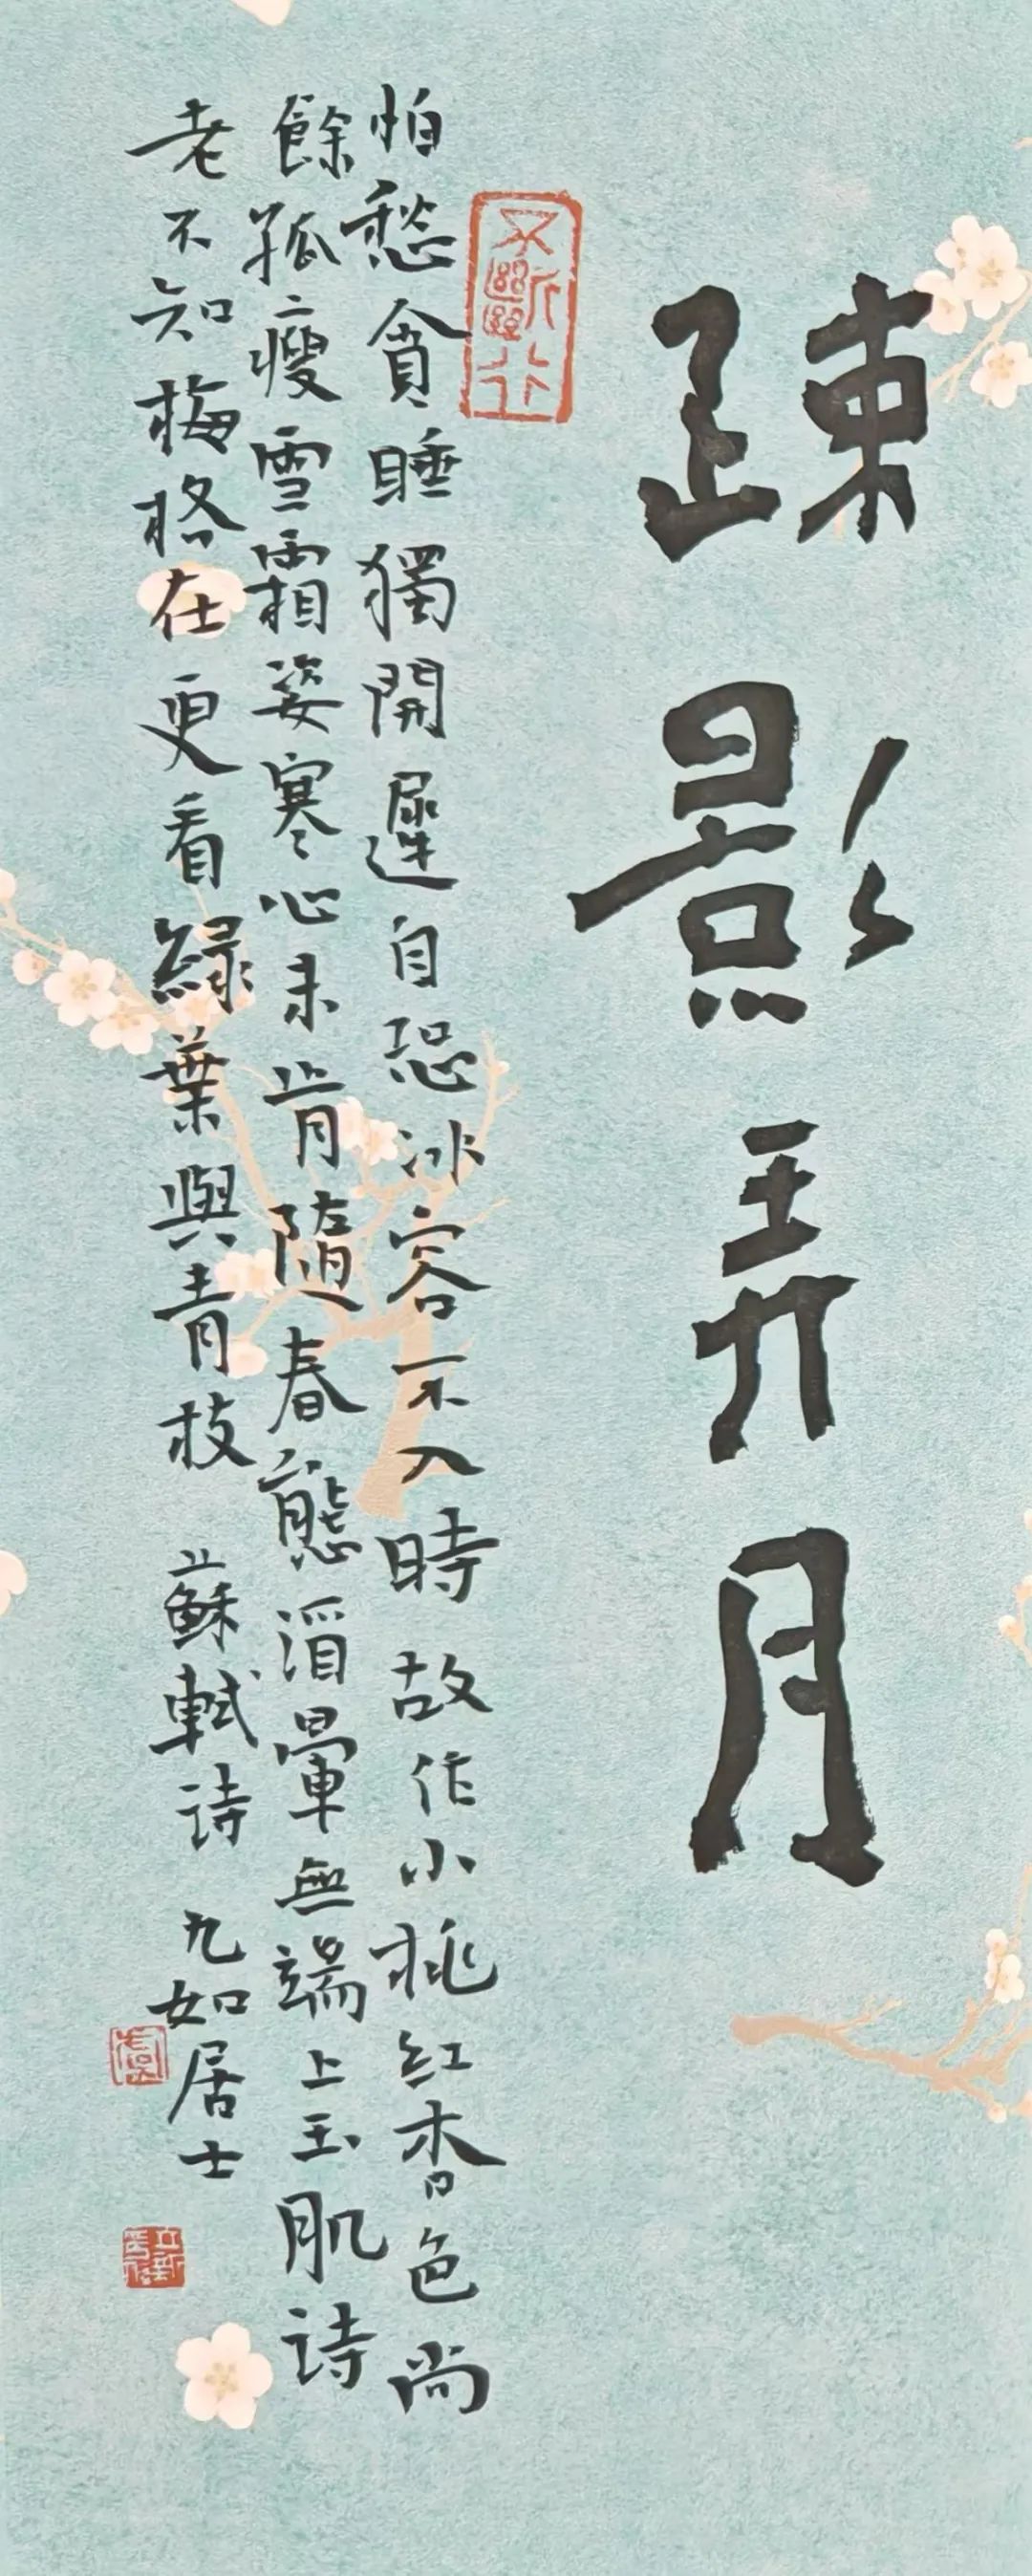 疎影弄月
怕愁貪睡獨開遲自恐冰容不入時故作小桃紅杏色尚
餘孤瘦雪霜姿寒心未肯隨春態酒暈無端上玉肌詩
老不知梅格在更看綠葉與青枝 蘇軾詩 九如居士